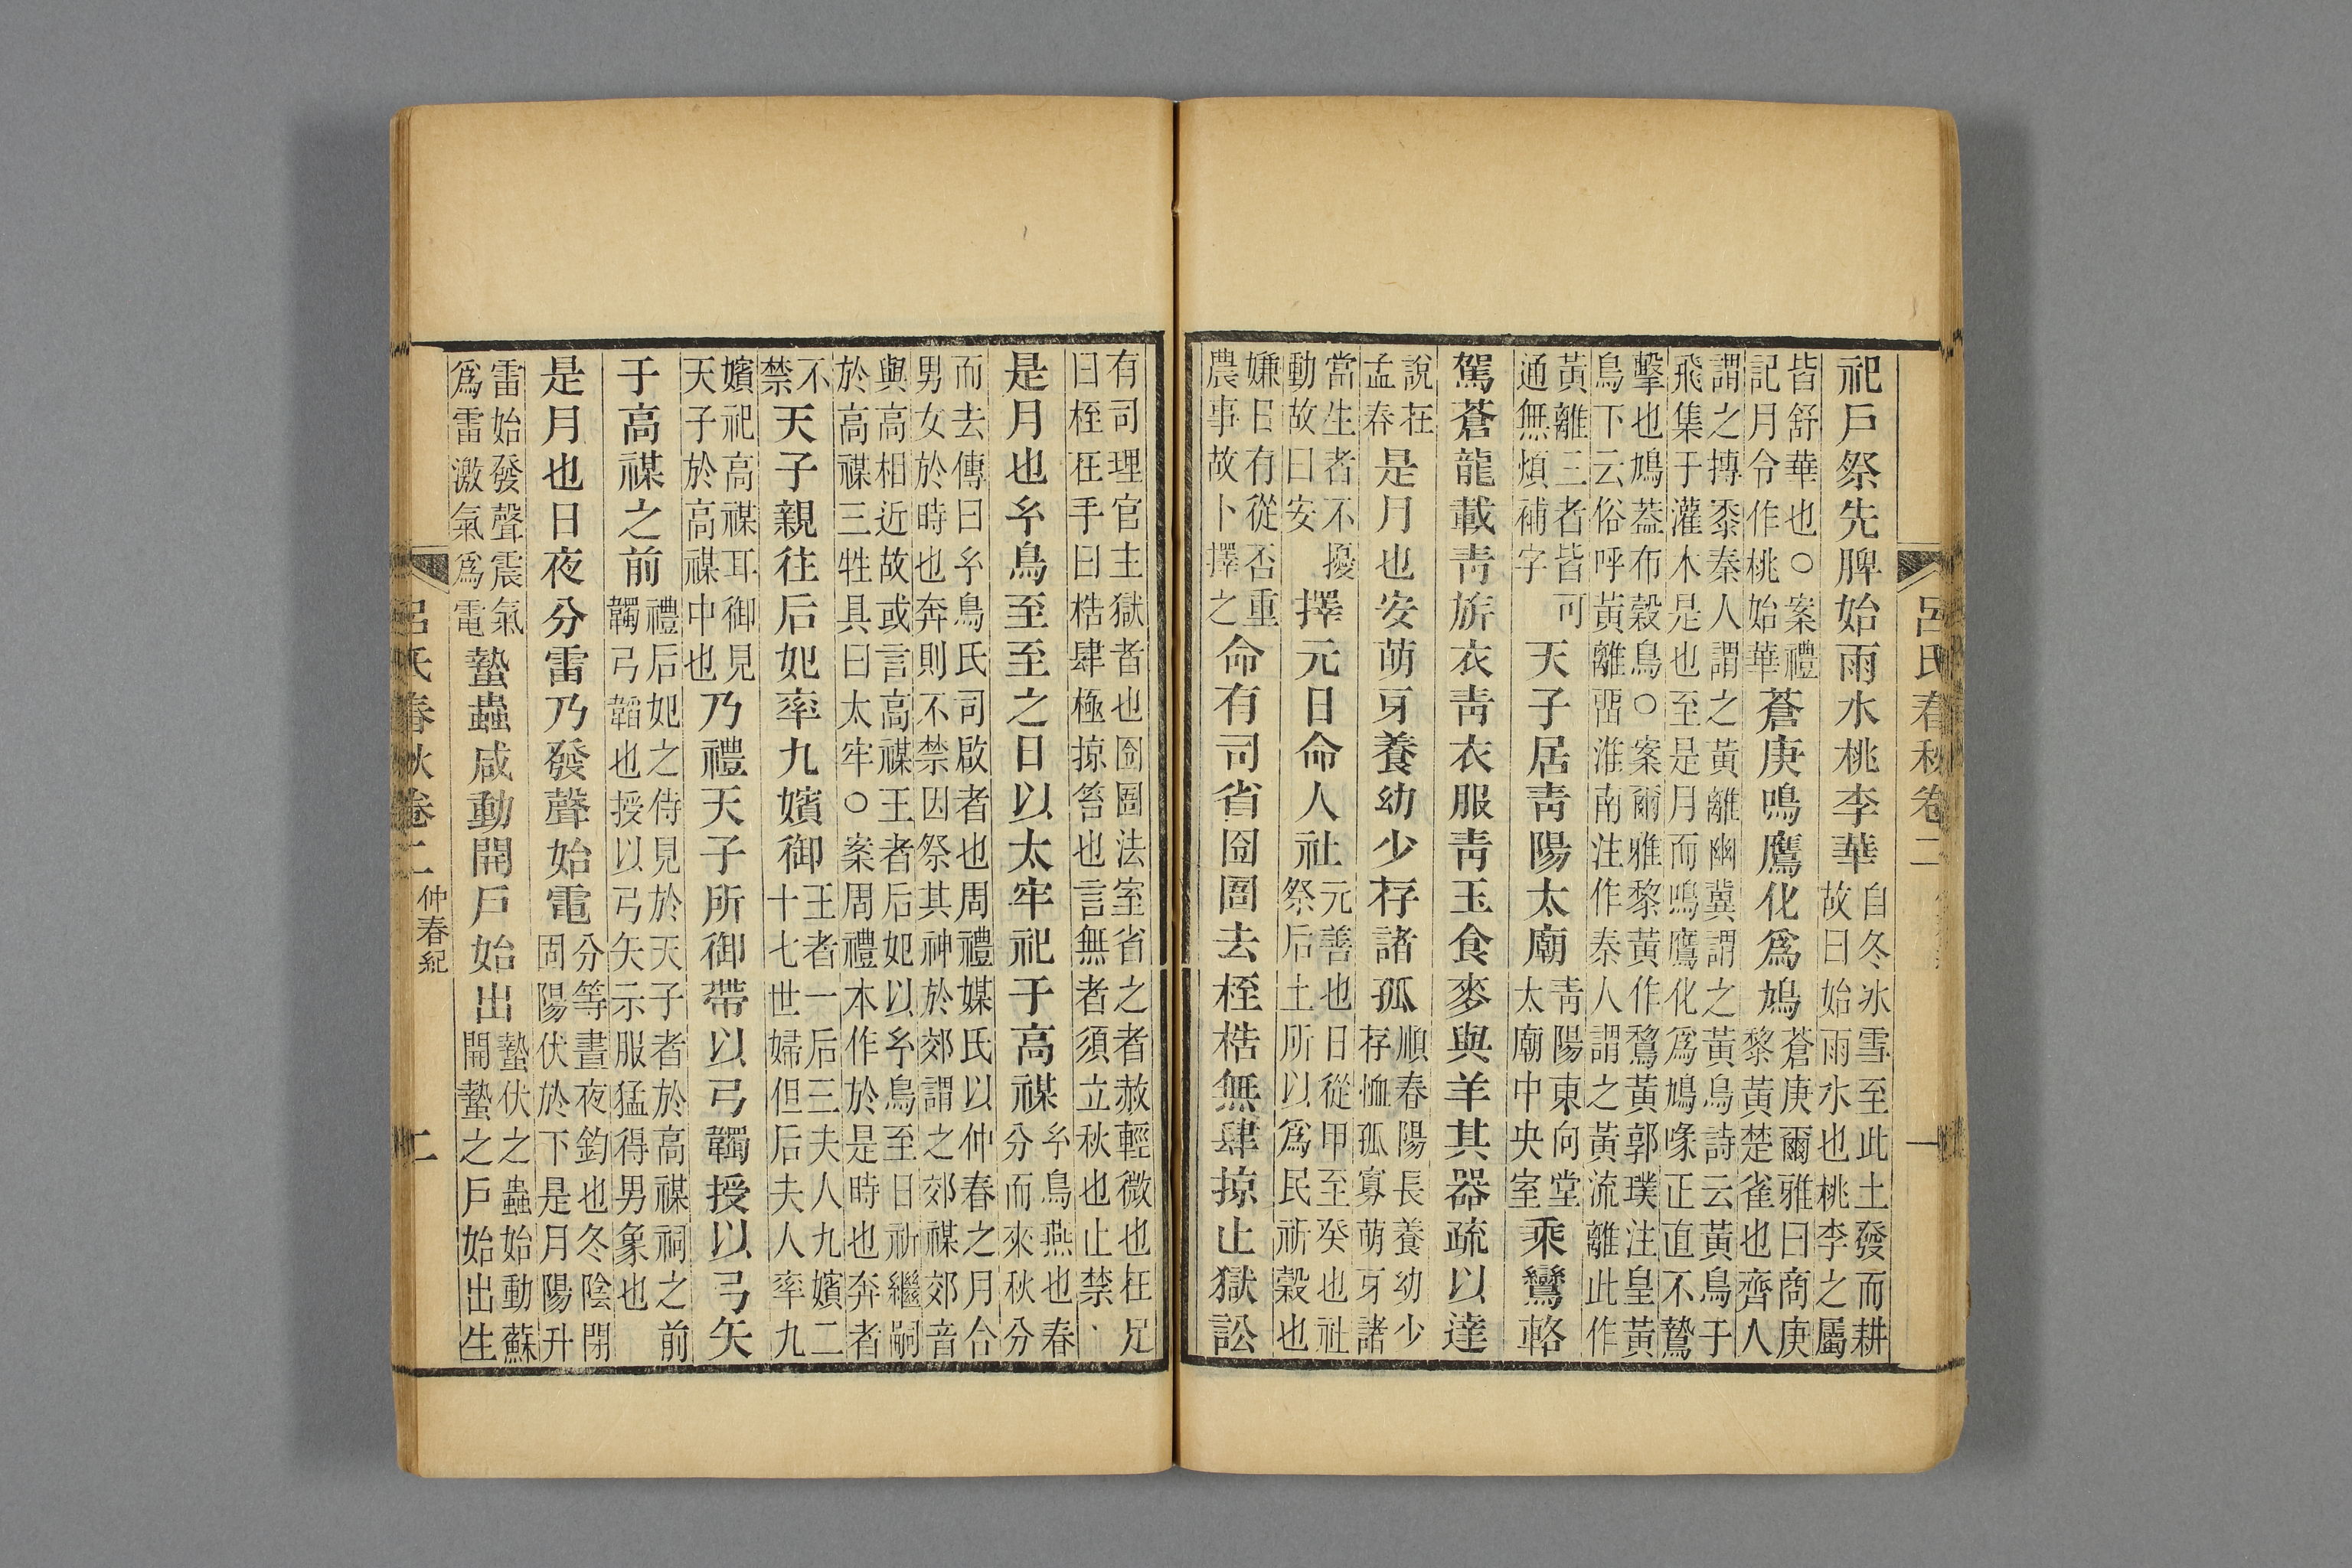 呂氏春秋卷二
一
祀戶祭先脾始雨水桃李華
自冬冰雪至此土發而耕
故曰始雨水也桃李之屬
皆舒華也○案禮
記月令作桃始華
蒼庚鳴鷹化爲鳩
蒼庚爾雅曰商庚
黎黃楚雀也齊人
謂之摶黍秦人謂之黃離幽冀謂之黃鳥詩云黃鳥于
飛集于灌木是也至是月而鳴鷹化爲鳩喙正直不鷙
擊也鳩葢布穀鳥○案爾雅黎黃作鵹黃郭璞注皇黃
鳥下云俗呼黃離畱淮南注作秦人謂之黃流離此作
黃離三者皆可
通無煩補字
天子居靑陽太廟
靑陽東向堂
太廟中央室
乘鸞輅
駕蒼龍載靑旂衣靑衣服靑玉食麥與羊其器疏以達
說在
孟春
是月也安萌牙養幼少存諸孤
順春陽長養幼少
存恤孤寡萌牙諸
當生者不擾
動故曰安
擇元日命人社
元善也日從甲至癸也社
祭后土所以爲民祈穀也
嫌日有從否重
農事故卜擇之
命有司省囹圄去桎梏無肆掠止獄訟
有司理官主獄者也囹圄法室省之者赦輕微也在足
曰桎在手曰梏肆極掠笞也言無者須立秋也止禁
是月也玄鳥至至之日以太牢祀于高禖
玄鳥燕也春
分而來秋分
而去傳曰玄鳥氏司啟者也周禮媒氏以仲春之月合
男女於時也奔則不禁因祭其神於郊謂之郊禖郊音
與高相近故或言高禖王者后妃以玄鳥至日祈繼嗣
於高禖三牲具曰太牢○案周禮本作於是時也奔者
不
禁
天子親往后妃率九嬪御
王者一后三夫人九嬪二
十七世婦但后夫人率九
嬪祀高禖耳御見
天子於高禖中也
乃禮天子所御帶以弓韣授以弓矢
于高禖之前
禮后妃之侍見於天子者於高禖祠之前
韣弓韜也授以弓矢示服猛得男象也
是月也日夜分雷乃發聲始電
分等晝夜鈞也冬陰閉
固陽伏於下是月陽升
雷始發聲震氣
爲雷激氣爲電
蟄蟲咸動開戶始出
蟄伏之蟲始動蘇
開蟄之戶始出生
呂氏春秋卷二
仲春紀
二